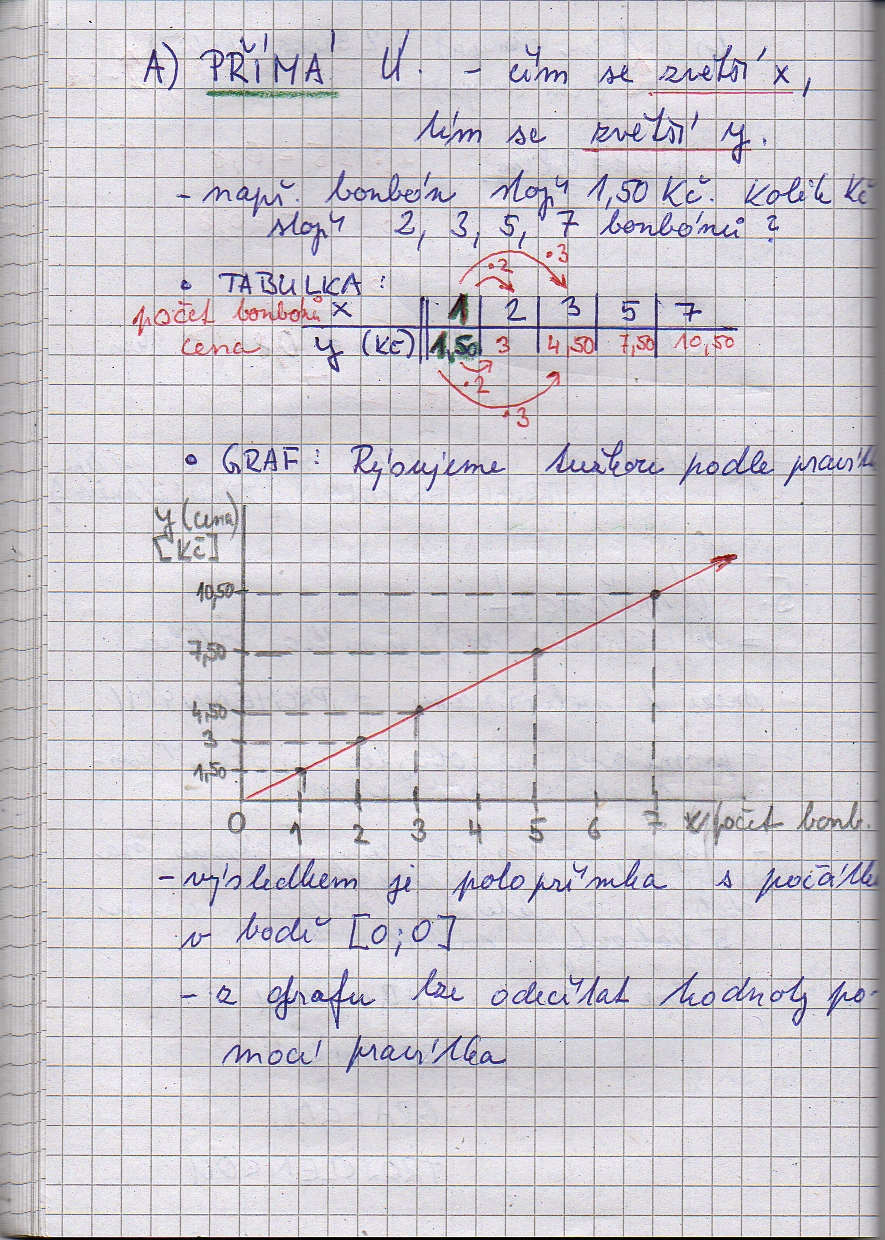 A) PŘÍMÁ Ú. - čím se zvětší x,
tím se zvětší y.
- např. bonbón stojí 1,50 Kč. Kolik Kč
stojí 2, 3, 5, 7 bonbónů?
• TABULKA:
·2 ·3
počet bonbonů x 1 2 3 5 7
cena y (Kč) 1,50 3 4,50 7,50 10,50
·2
·3
• GRAF: Rýsujeme tužkou podle pravít
y (cena)
[Kč]
10,50
7,50
4,50
3
1,50
0 1 2 3 4 5 6 7 x/počet bonb.
- výsledkem je polopřímka s počátk
v bodě [0;0]
- z grafu lze odečítat hodnoty po-
mocí pravítka